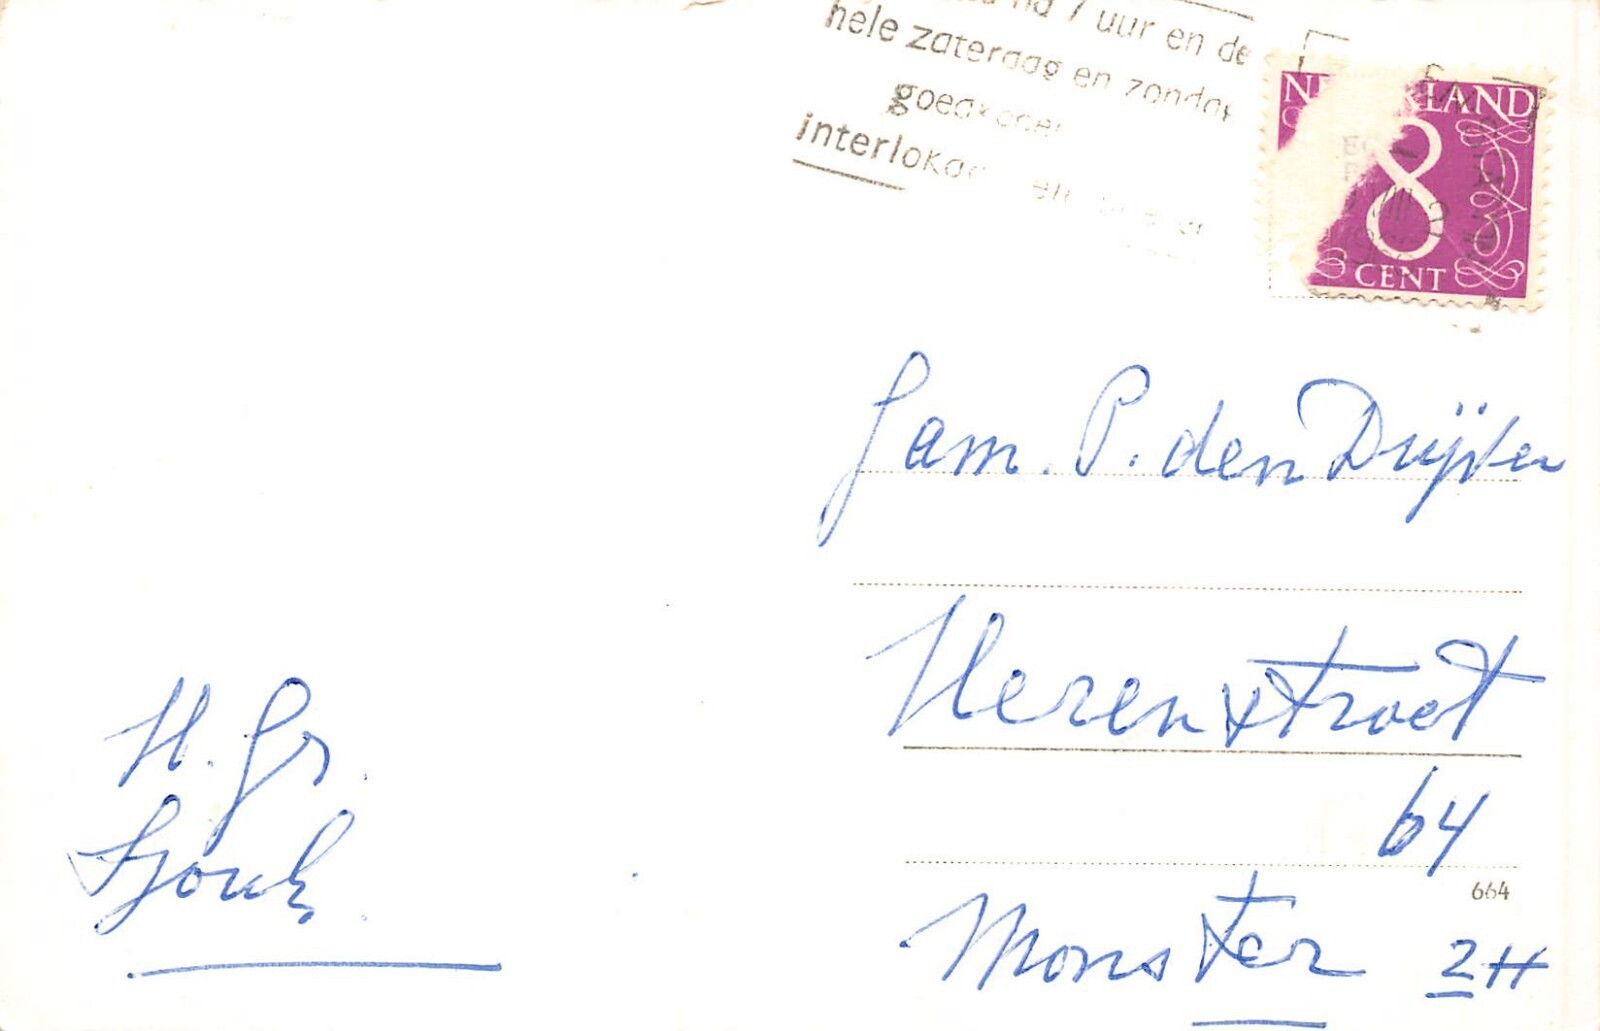 na 7 uur en de
hele zaterdag en zondag
goedkoper
interlokaal
NEDERLAND
8
CENT
Fam. P. den Duijver
Herenstraat
64
664
Monster ZH
H. Gr.
Sjouk.